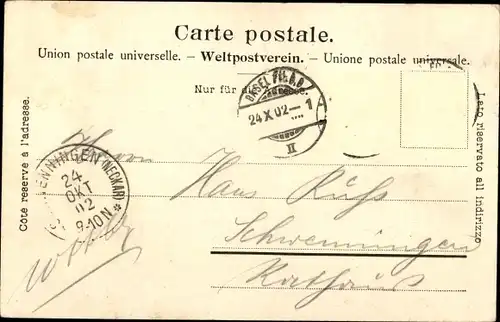 Carte postale.
Union postale universelle. - Weltpostverein. - Unione postale universale.
Nur für die Adresse.
BASEL FIL. B.B.
24 X 02 - 1
II
Côté réservé à l'adresse.
Lato riservato all indirizzo
SCHWENNINGEN (NECKAR)
24
OKT
02
9-10 N
*
Herrn
Hans
Schwenningen
Rathaus